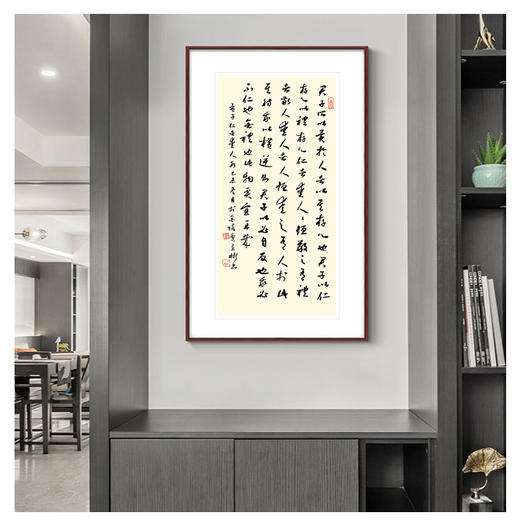 君子所以異於人者以其存心也君子以仁
存心以禮存心仁者愛人人恒敬之有禮
者敬人愛人者人恒愛之有人於此
其待我以橫逆則君子必自反也我必
不仁也必無禮也此物奚宜至哉
孟子仁者愛人句乙未冬月於金陵